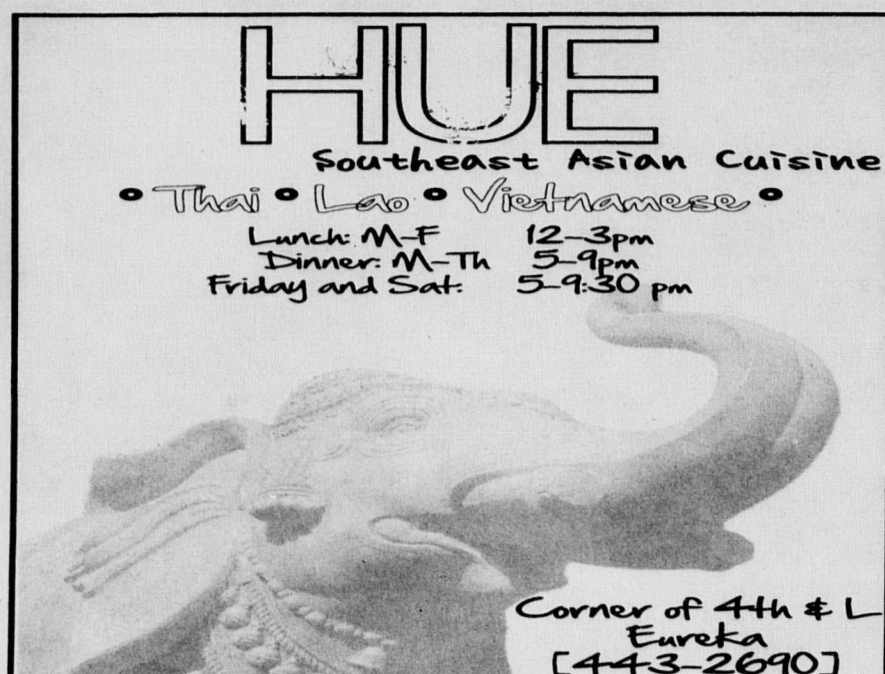 HUE
Southeast Asian Cuisine
• Thai • Lao • Vietnamese •
Lunch: M-F 12-3pm
Dinner: M-Th 5-9pm
Friday and Sat: 5-9:30 pm
Corner of 4th & L
Eureka
[443-2690]